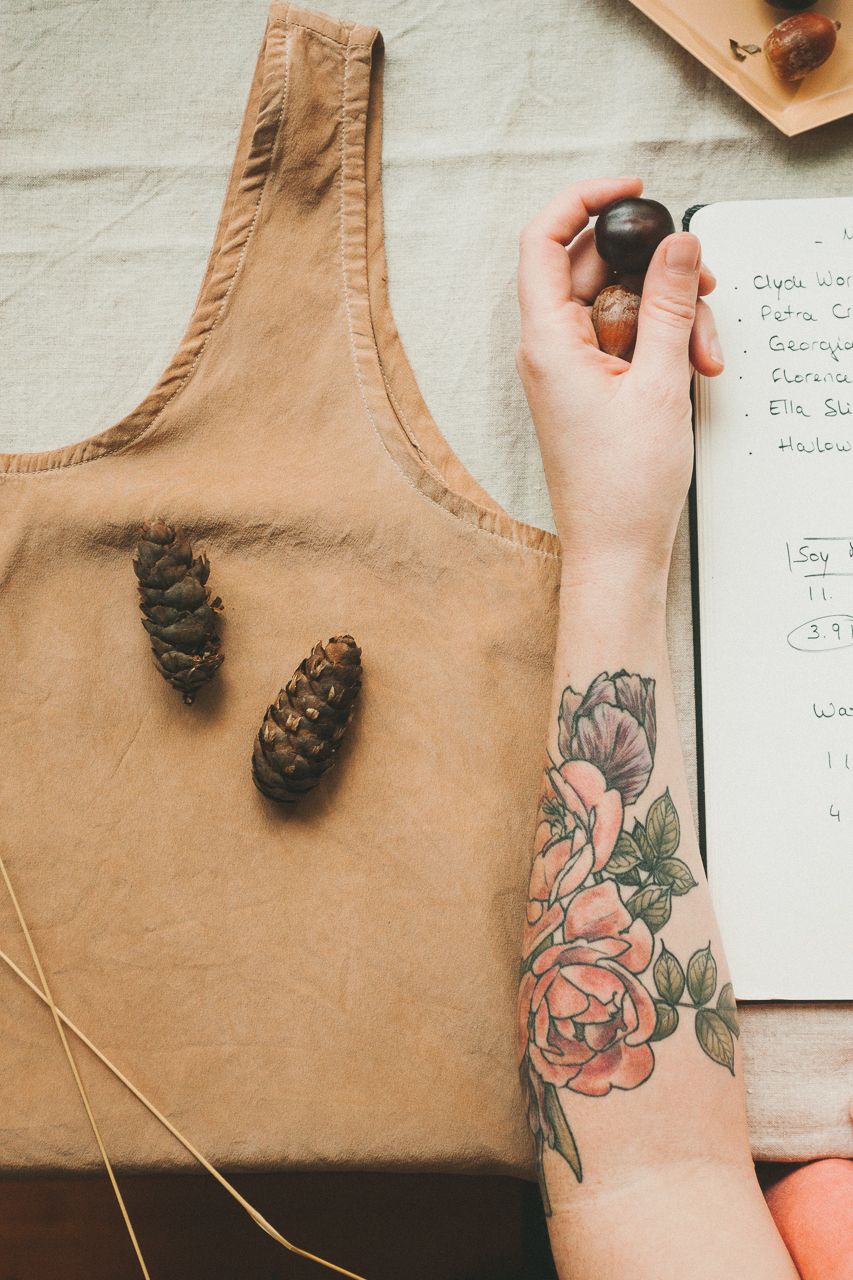 Clyde Wor
Petra Cr
Georgia
Florence
Ella Sli
Harlow
Soy
11.
3.9
Wa
11
4